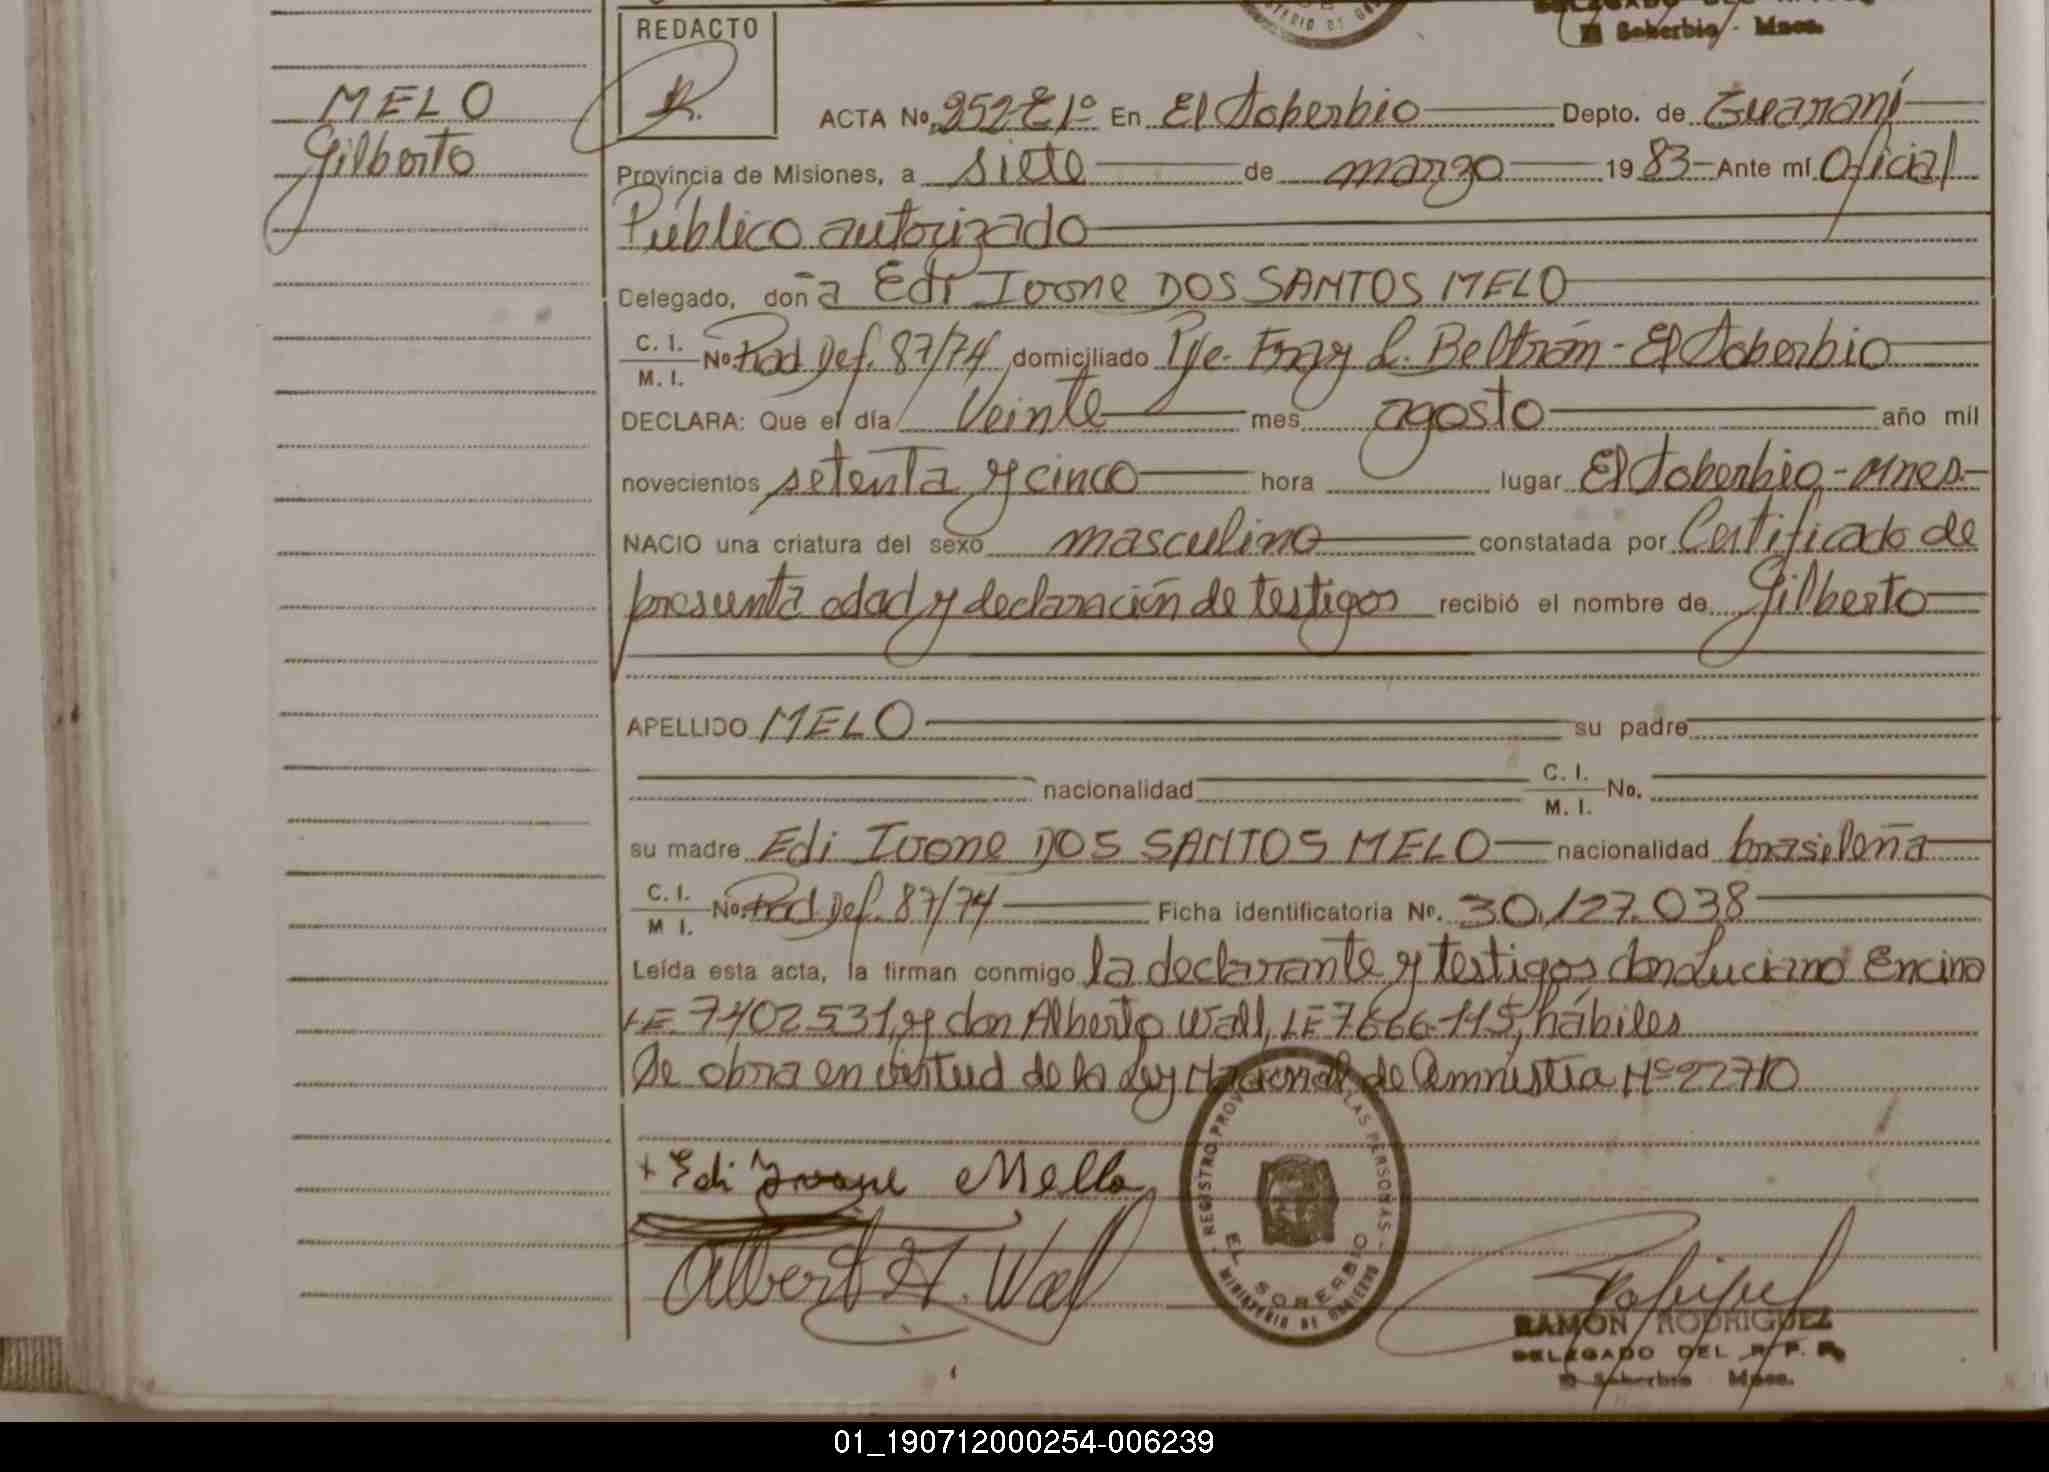 REDACTO
Soberbio - Mnes.
MELO
Gilberto
ACTA No. 252 T 1º En El Soberbio Depto. de Guaraní
Provincia de Misiones, a siete de marzo 1983 Ante mí Oficial
Público autorizado
Delegado, don a Edi Ivone DOS SANTOS MELO
C. I.
M. I.
No. Rad Def. 87/74 domiciliado Pje. Fray L. Beltrán - El Soberbio
DECLARA: Que el día Veinte mes agosto año mil
novecientos setenta y cinco hora lugar El Soberbio - Mnes.
NACIO una criatura del sexo masculino constatada por Certificado de
presunta edad y declaración de testigos recibió el nombre de Gilberto
APELLIDO MELO su padre
nacionalidad C. I. M. I. No.
su madre Edi Ivone DOS SANTOS MELO nacionalidad brasileña
C. I.
M I.
No. Rad Def. 87/74 Ficha identificatoria No. 30.127.038
Leída esta acta, la firman conmigo la declarante y testigos don Luciano Encina
LE 7402531, y don Alberto Wall, LE 7.666.115, hábiles
Se obra en virtud de la Ley Nacional de Amnistia Nº 22710
+ Edi Ivone Mello
Albert H. Wall
REGISTRO PROV LAS PERSONAS
EL SOBERBIO
MINISTERIO DE GOBIERNO
RAMON RODRIGUEZ
DELEGADO DEL R. P. P.
El Soberbio Mnes.
01_190712000254-006239